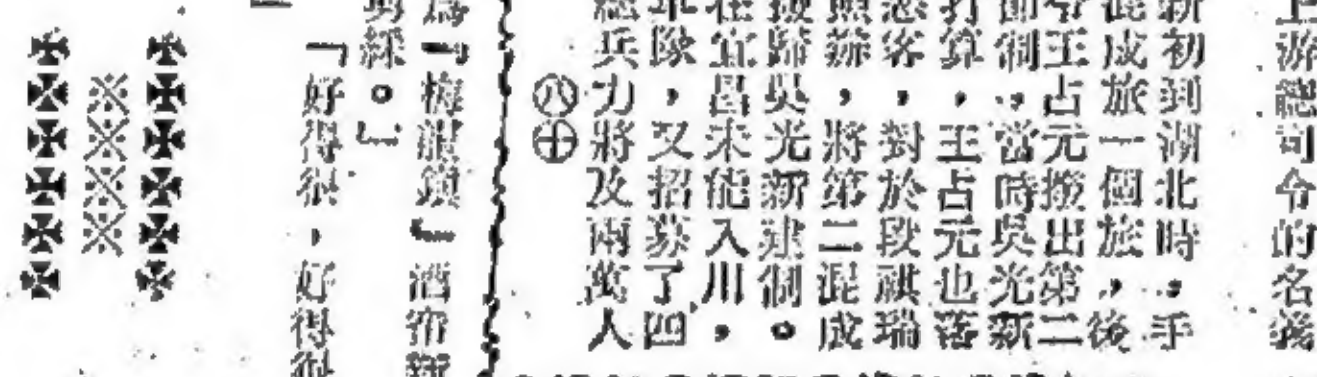 上游總司令的名義
新初到湖北時，手
混成旅一個旅，後
令王占元撥出第二
節制，當時吳光新
打算，王占元也落
忽客，對於段祺瑞
照辦，將第二混成
撥歸吳光新建制。
在宜昌未能入川，
軍隊，又招募了四
總兵力將及兩萬人
㊇㊉
為「梅龍鎮」酒
剪綵。」
「好得很，好得很